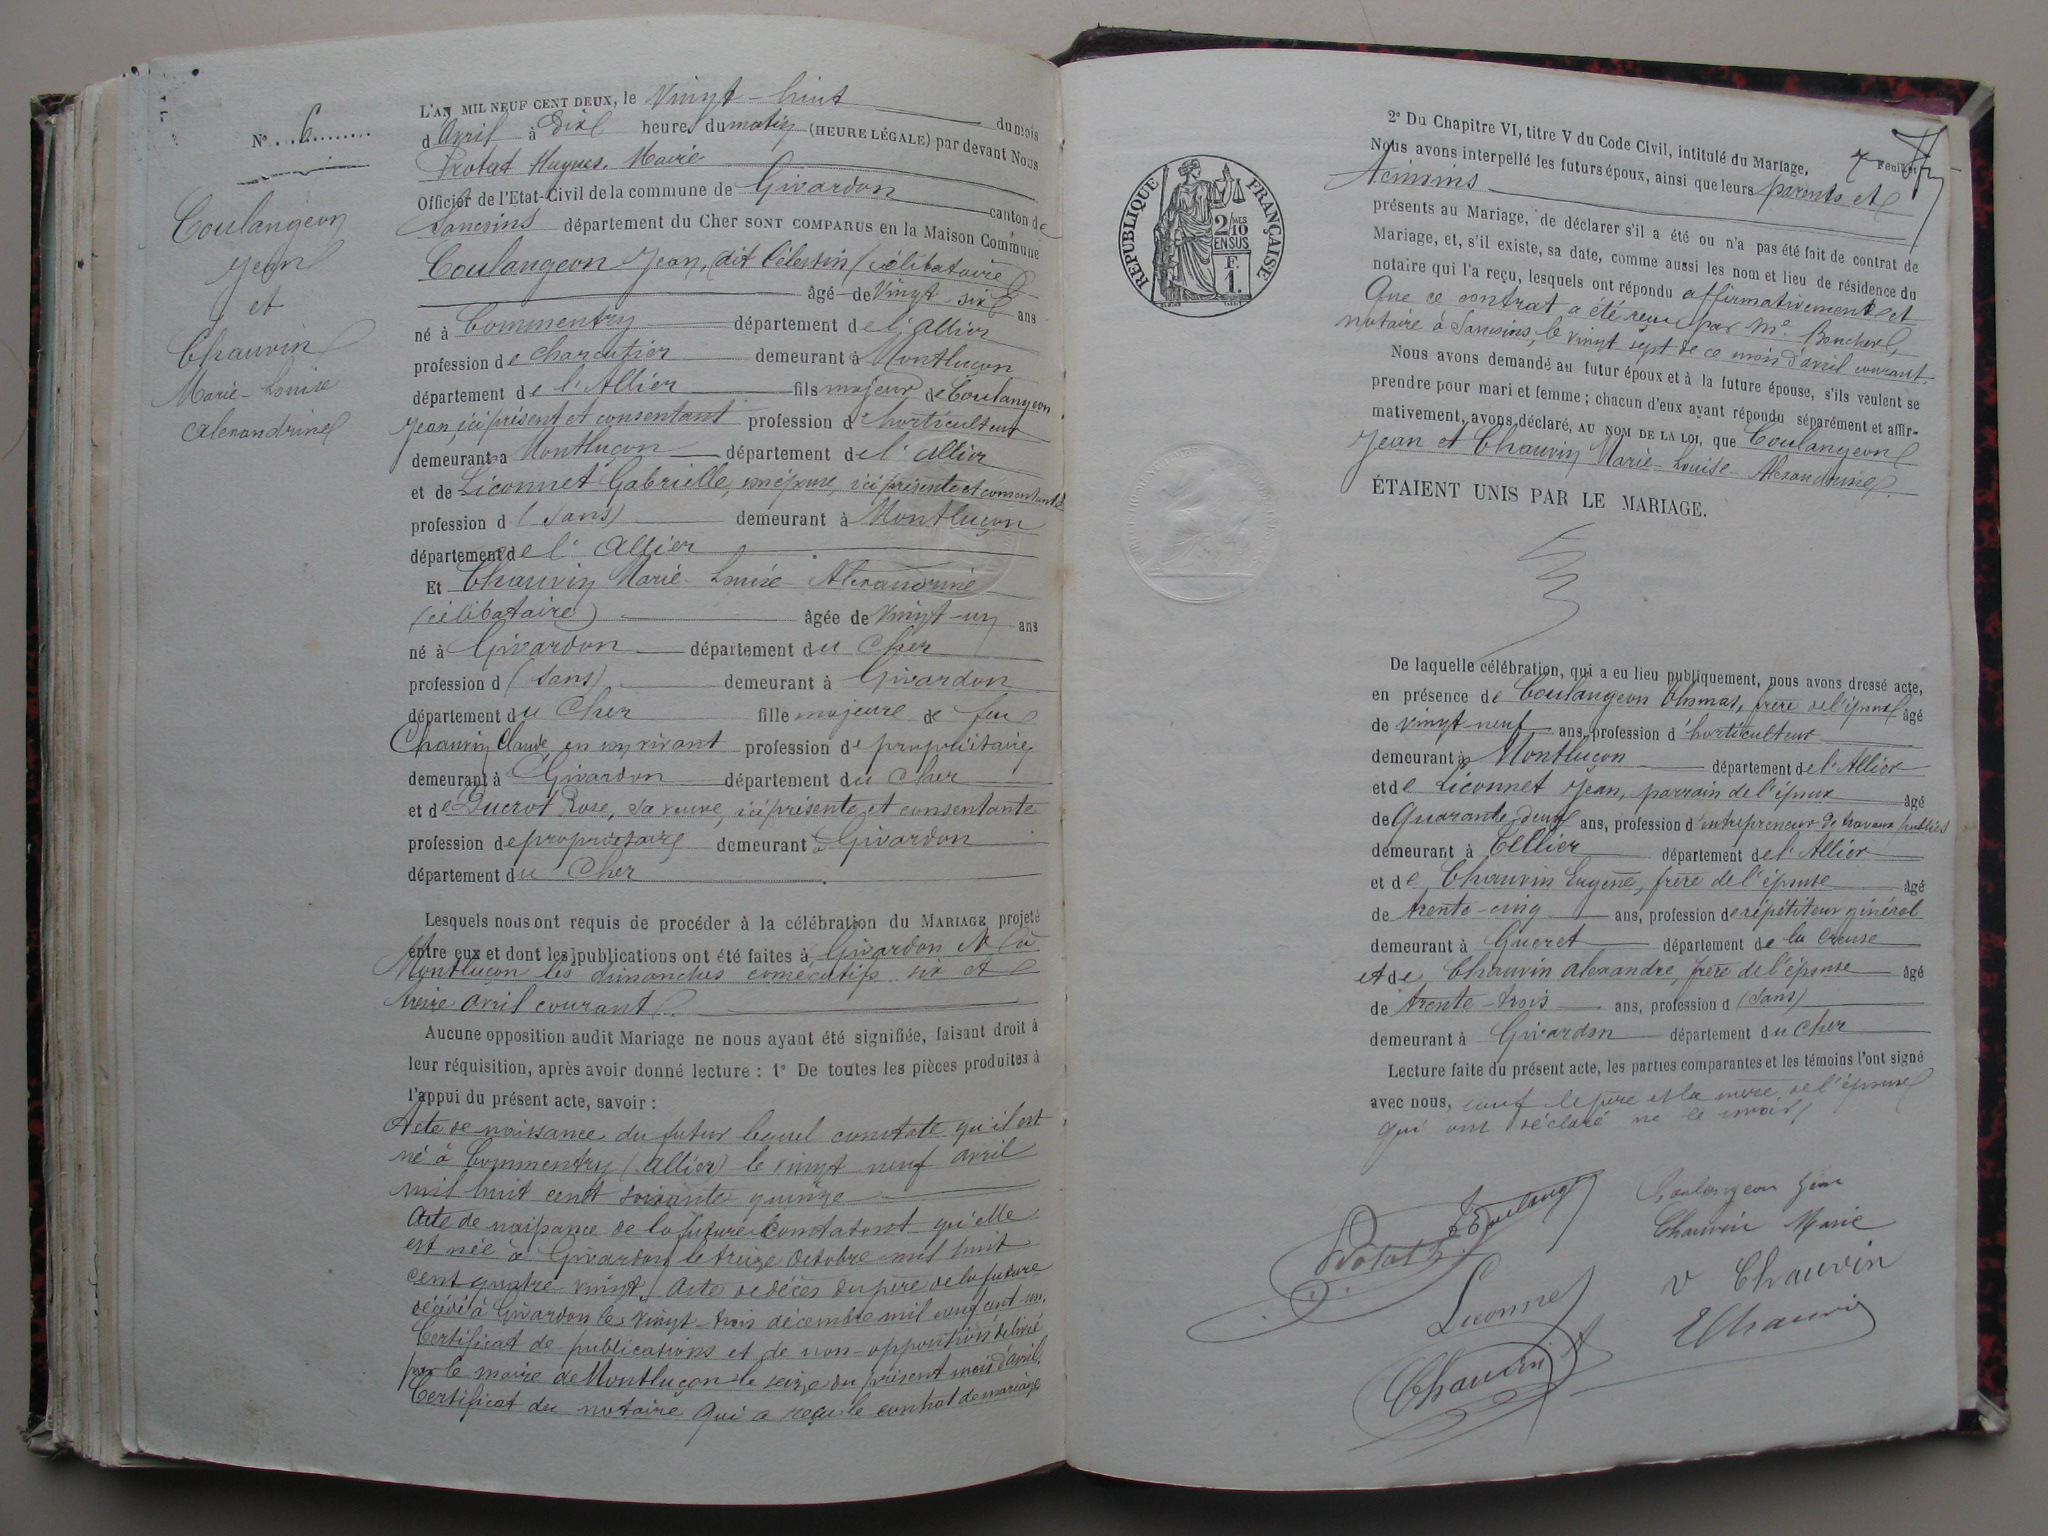 N° 6
Coulangeon
Jean
et
Chauvin
Marie-Louise
Alexandrine
L'AN MIL NEUF CENT DEUX, le Vingt-huit du mois
d'Avril à Dix heures du matin (HEURE LÉGALE) par devant Nous
Protat Hugues Marie
Officier de l'Etat-Civil de la commune de Givardon canton de
Sancoins département du Cher SONT COMPARUS en la Maison Commune
Coulangeon Jean, (dit Célestin) (célibataire)
âgé de Vingt-six ans
né à Commentry département de l'Allier
profession de charcutier demeurant à Montluçon
département de l'Allier fils majeur de Coulangeon
Jean, ici présent et consentant profession d'horticulteur
demeurant à Montluçon département de l'Allier
et de Liconnet Gabrielle, son épouse, ici présente et consentante
profession d (sans) demeurant à Montluçon
département de l'Allier
Et Chauvin Marie-Louise-Alexandrine
(célibataire) âgée de Vingt-un ans
né à Givardon département du Cher
profession d (sans) demeurant à Givardon
département du Cher fille majeure de feu
Chauvin Claude, en son vivant profession de propriétaire
demeurant à Givardon département du Cher
et de Ducrot Rose, sa veuve, ici présente et consentante
profession de propriétaire demeurant à Givardon
département du Cher
Lesquels nous ont requis de procéder à la célébration du MARIAGE projeté
entre eux et dont les publications ont été faites à Givardon et à
Montluçon les dimanches consécutifs six et
treize avril courant.
Aucune opposition audit Mariage ne nous ayant été signifiée, faisant droit à
leur réquisition, après avoir donné lecture : 1° De toutes les pièces produites à
l'appui du présent acte, savoir :
Acte de naissance du futur lequel constate qu'il est
né à Commentry (Allier) le vingt neuf avril
mil huit cent soixante quinze
Acte de naissance de la future constatant qu'elle
est née à Givardon le treize Octobre mil huit
cent quatre vingt / Acte de décès du père de la future
décédé à Givardon le vingt-trois décembre mil neuf cent un.
Certificat de publications et de non-opposition délivré
par le maire de Montluçon le seize du présent mois d'avril.
Certificat du notaire qui a reçu le contrat de mariage
7e Feuillet
2° Du Chapitre VI, titre V du Code Civil, intitulé du Mariage.
Nous avons interpellé les futurs époux, ainsi que leurs parents et
témoins
présents au Mariage, de déclarer s'il a été ou n'a pas été fait de contrat de
Mariage, et, s'il existe, sa date, comme aussi les nom et lieu de résidence du
notaire qui l'a reçu, lesquels ont répondu affirmativement et
Que ce contrat a été reçu par Me Boucher,
notaire à Sancoins, le vingt sept de ce mois d'avril courant.
Nous avons demandé au futur époux et à la future épouse, s'ils veulent se
prendre pour mari et femme ; chacun d'eux ayant répondu séparément et affir-
mativement, avons déclaré, AU NOM DE LA LOI, que Coulangeon
Jean et Chauvin Marie-Louise-Alexandrine
ÉTAIENT UNIS PAR LE MARIAGE.
De laquelle célébration, qui a eu lieu publiquement, nous avons dressé acte,
en présence de Coulangeon Thomas, frère de l'époux âgé
de vingt neuf ans, profession d'horticulteur
demeurant à Montluçon département de l'Allier
et de Liconnet Jean, parrain de l'époux âgé
de Quarante-deux ans, profession d'entrepreneur de travaux publics
demeurant à département de l'Allier
et de Chauvin Eugène, frère de l'épouse âgé
de trente-cinq ans, profession de répétiteur général
demeurant à Guéret département de la Creuse
et de Chauvin Alexandre, frère de l'épouse âgé
de trente-trois ans, profession d (sans)
demeurant à Givardon département du Cher
Lecture faite du présent acte, les parties comparantes et les témoins l'ont signé
avec nous, sauf le père et la mère de l'époux
qui ont déclaré ne le savoir
Coulangeon Jean
Chauvin Marie
Protat
V Chauvin
Liconnet
E Chauvin
Chauvin
RÉPUBLIQUE FRANÇAISE
2/10MES
EN SUS
F.
1.